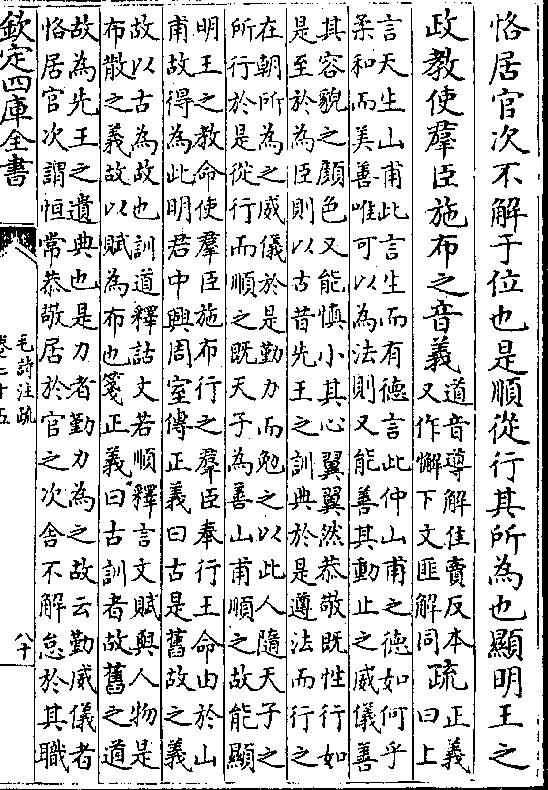 恪居官次不解于位也是順從行其所為也顯明王之
政教使羣臣施布之音義道音導解佳賣反本又作懈下文匪解同疏正義曰上
言天生山甫此言生而有德言此仲山甫之德如何乎
柔和而美善唯可以為法則又能善其動止之威儀善
其容貌之顏色又能慎小其心翼翼然恭敬既性行如
是至於為臣則以古昔先王之訓典於是遵法而行之
在朝所為之威儀於是勤力而勉之以此人隨天子之
所行於是從行而順之既天子為善山甫順之故能顯
明王之教命使羣臣施布行之羣臣奉行王命由於山
甫故得為此明君中興周室傳正義曰古是舊故之義
故以古為故也訓道釋詁文若順釋言文賦與人物是
布散之義故以賦為布也箋正義曰古訓者故舊之道
故為先王之遺典也是力者勤力為之故云勤威儀者
恪居官次謂恒常恭敬居於官之次舍不解怠於其職
欽定四庫全書
毛詩注疏
卷二十五
八十